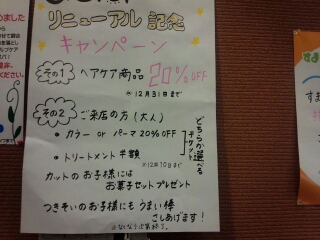 リニューアル 記念
キャンペーン
その1 ヘアケア商品 20%OFF
※12月31日まで
その2 ご来店の方(大人)
• カラー or パーマ 20%OFF
• トリートメント 半額
どちらか選べるチケット
※12/30日まで
カットのお子様には
お菓子セットプレゼント
つきそいのお子様にも うまい棒
さしあげます!
※なくなり次第終了。